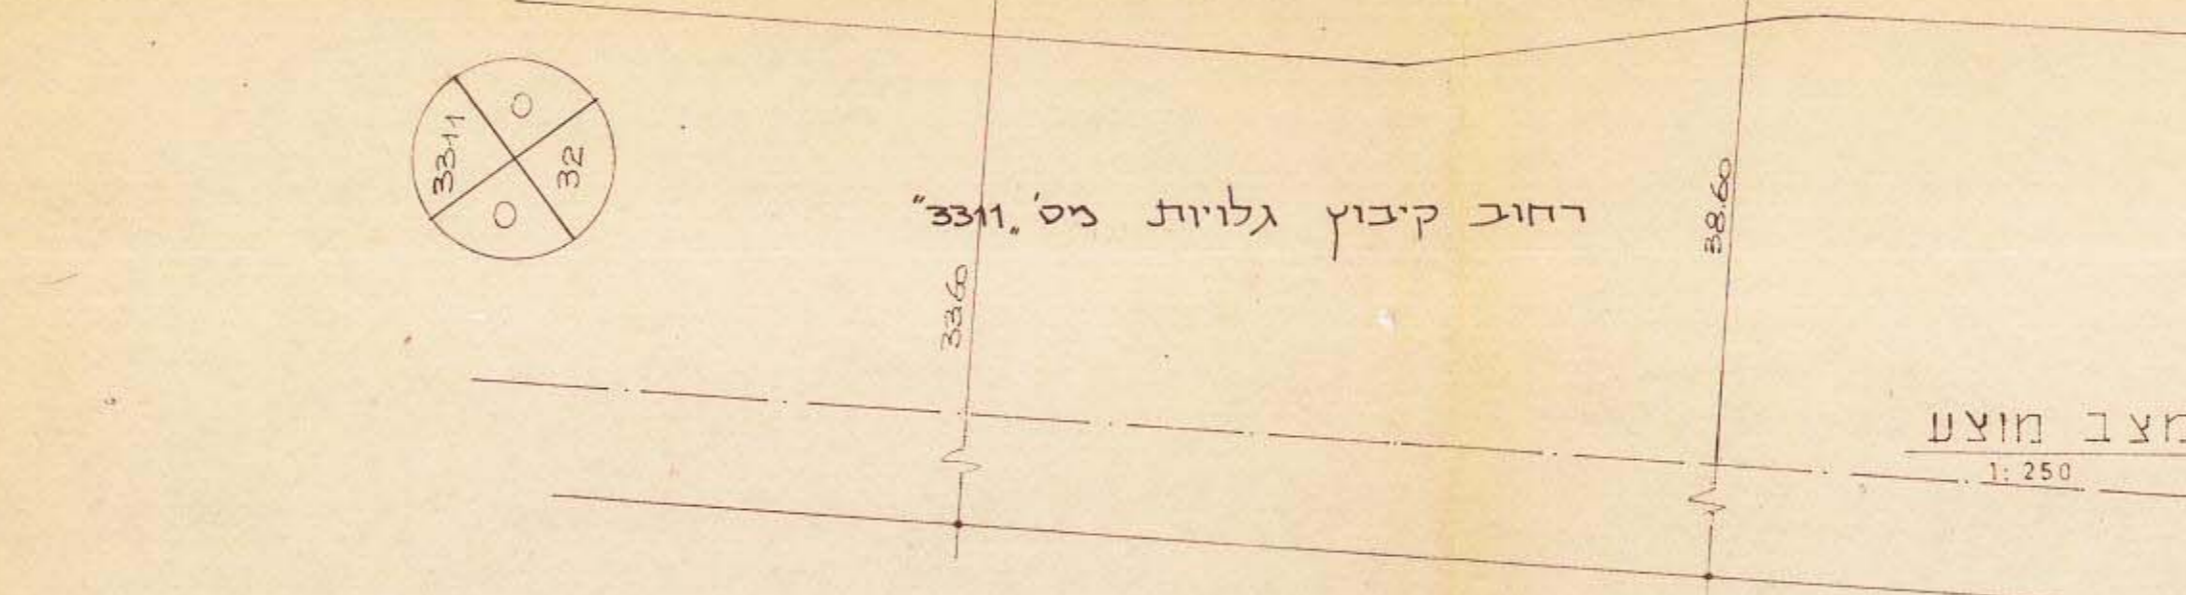 O
3311
32
O
רחוב קיבוץ גלויות מס' „3311"
38.60
33.60
מצב מוצע
1:250